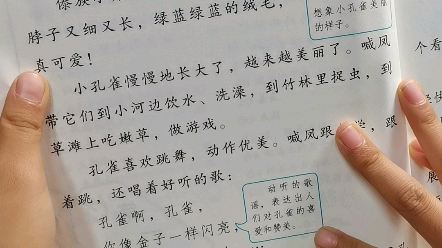 傣族小
脖子又细又长，绿蓝绿蓝的绒毛，
真可爱！
小孔雀慢慢地长大了，越来越美丽了。喊凤
带它们到小河边饮水、洗澡，到竹林里捉虫，到
草滩上吃嫩草，做游戏。
孔雀喜欢跳舞，动作优美。喊凤跟 学，跟
着跳，还唱着好听的歌：
孔雀啊，孔雀，
你像金子一样闪亮，
想象小孔雀美丽
的样子。
动听的歌
谣，表达出人
们对孔雀的喜
爱和赞美。
个看